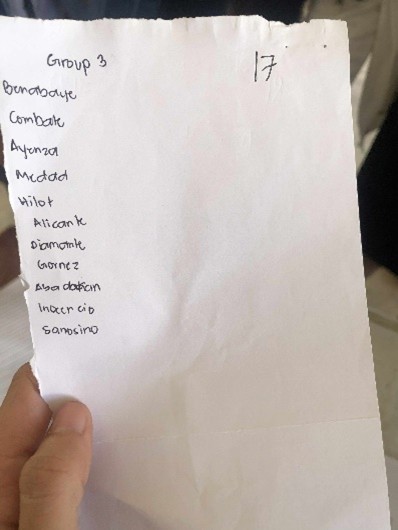 Group 3
17
Benabaye
Combate
Ayenza
Medad
Hilot
Alicante
Diamante
Gomez
Inocencio
Sanosino